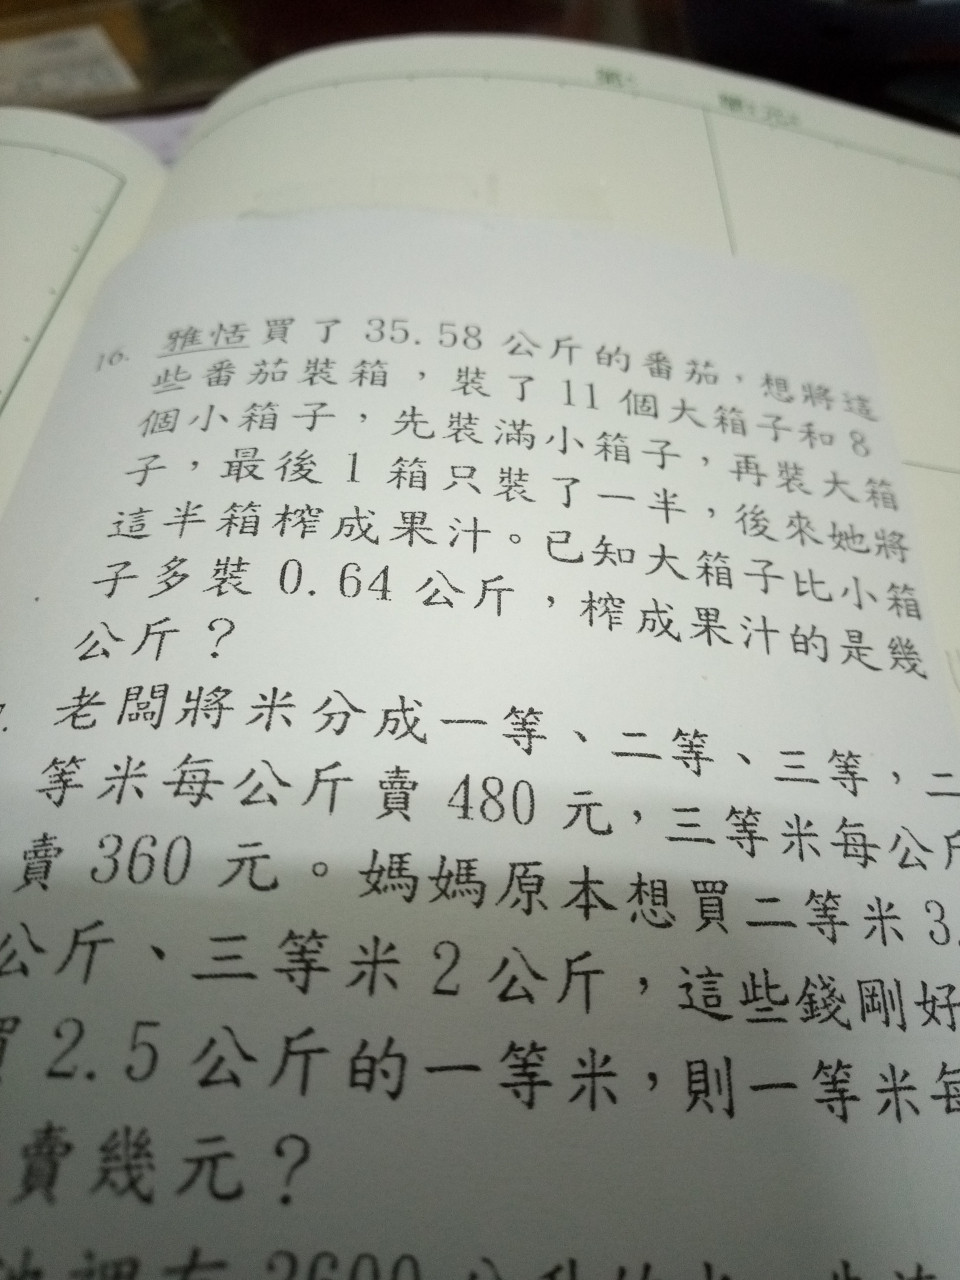 16. 雅恬買了 35.58 公斤的番茄，想將這
些番茄裝箱，裝了 11 個大箱子和 8
個小箱子，先裝滿小箱子，再裝大箱
子，最後 1 箱只裝了一半，後來她將
這半箱榨成果汁。已知大箱子比小箱
子多裝 0.64 公斤，榨成果汁的是幾
公斤？
老闆將米分成一等、二等、三等，二
等米每公斤賣 480 元，三等米每公斤
賣 360 元。媽媽原本想買二等米 3.
公斤、三等米 2 公斤，這些錢剛好
買 2.5 公斤的一等米，則一等米每
賣幾元？